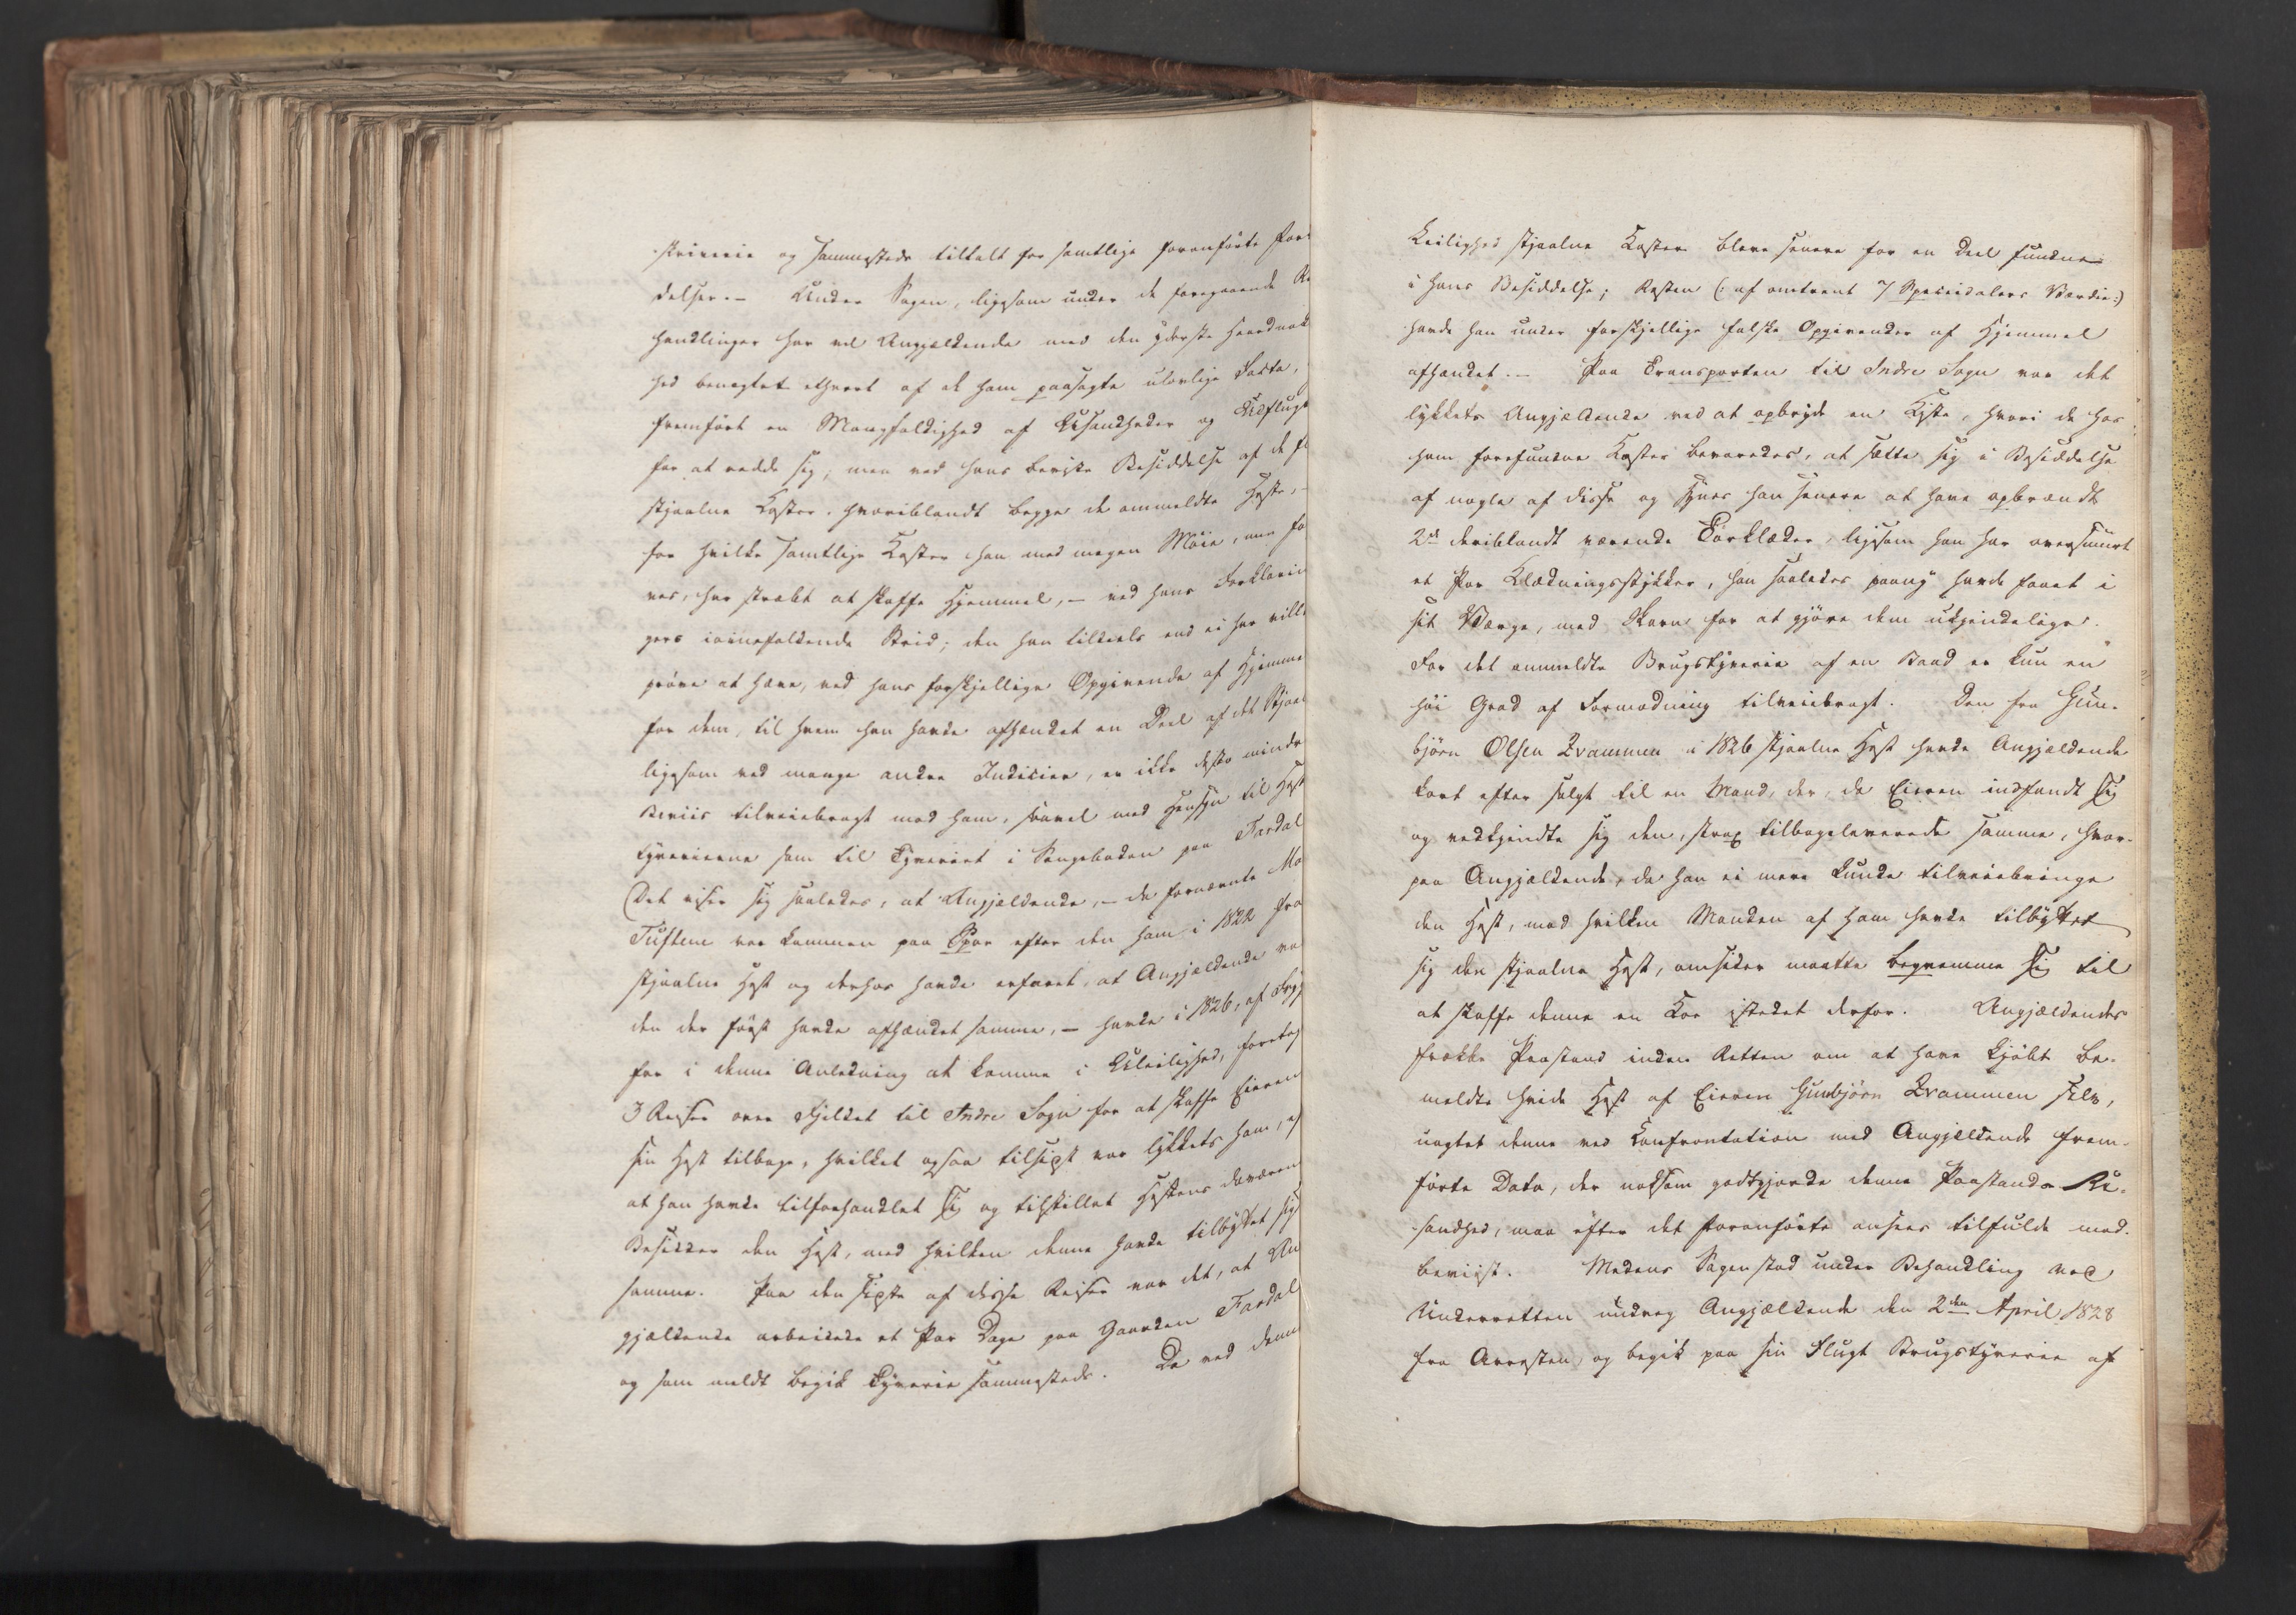 skriverie og sammesteds tiltalt for samtlige foranførte For
delser. – Under Sagen, ligesom under de foregaaende
handlinger har vel Angjældende med den yderste Haardnak
hed benegtet ethvert af de ham paasagte ulovlige Facta,
fremført en Mangfoldighed af Usandheder og Udflugt
for at redde sig; men ved hans beviste Besiddelse af de
stjaalne Koster, hvoriblandt begge de ommeldte Heste, –
for hvilke samtlige Koster han med megen Møie, men
ves, har stræbt at skaffe Hjemmel, – ved hans Forklarin
gers iøinefaldende Strid; den han tildeels end ei har vill
prøve at hæve, ved hans forskjellige Opgivende af Hjemme
for dem, til hvem han havde afhændet en Deel af det Stjaal
ligesom ved mange andre Indicier, er ikke desto mindre
Beviis tilveiebragt mod ham, saavel med Hensyn til Hest
tyverierne som til Tyveriet i Sengeboden paa Fardal
Det viser sig saaledes, at Angjældende, – da fornævnte
Tuftene var kommen paa Spor efter den ham i 1822 fra
stjaalne Hest og derhos havde erfaret, at Angjældende va
den der først havde afhændet samme, – havde i 1826, af Fryg
for i denne Anledning at komme i Uleilighed, foretag
3 Reiser over Fjeldet til Indre Sogn for at skaffe Eieren
sin Hest tilbage, hvilket ogsaa tilsidst var lykkets ham,
at han havde tilforhandlet sig og tilstillet Hestens daværen
Besidder den Hest, med hvilken denne havde tilbyttet sig
samme. Paa den sidste af disse Reiser var det, at An
gjældende arbeidede et Par Dage paa Gaarden Fardal
og som meldt begik Tyverie sammesteds. De ved denn
Leilighed stjaalne Koster bleve senere for en Deel fundne
i hans Besiddelse; Resten (: af omtrent 7 Speciedalers Værdie :)
havde han under forskjellige falske Opgivender af Hjemmel
afhændet. – Paa Transporten til Indre Sogn var det
lykkets Angjældende ved at opbryde en Kiste, hvori de hos
ham forefundne Koster bevaredes, at sætte sig i Besiddelse
af nogle af disse og synes han senere at have opbrændt
2de deriblandt værende Torklæder, ligesom han har oversmurt
et Par Klædningsstykker, han saaledes paany havde faaet i
sit Værge, med Skarn for at gjøre dem ukjendelige.
For det ommeldte Brugstyverie af en Baad er kun en
høi Grad af Formodning tilveiebragt. Den fra Gun-
bjørn Olsen Tvammen i 1826 stjaalne Hest havde Angjældende
kort efter solgt til en Mand, der, da Eieren indfandt sig
og vedkjendte sig den, strax tilbageleverede samme, hvor-
paa Angjældende, da han ei mere kunde tilveiebringe
den Hest, mod hvilken Manden af ham havde tilbyttet
sig den stjaalne Hest, omsider maatte beqvemme sig til
at skaffe denne en Koe istedet derfor. Angjældendes
frække Paastand inden Retten om at have kjøbt be-
meldte hvide Hest af Eieren Gunbjørn Tvammen selv,
uagtet denne ved Confrontation med Angjældende frem-
førte Data, der noksom godtgjorde denne Paastands U-
sandhed, maa efter det Foranførte ansees tilfulde mod-
beviist. Medens Sagen stod under Behandling ved
Underretten undveg Angjældende den 2den April 1828
fra Arresten, og begik paa sin Flugt Brugstyverie af